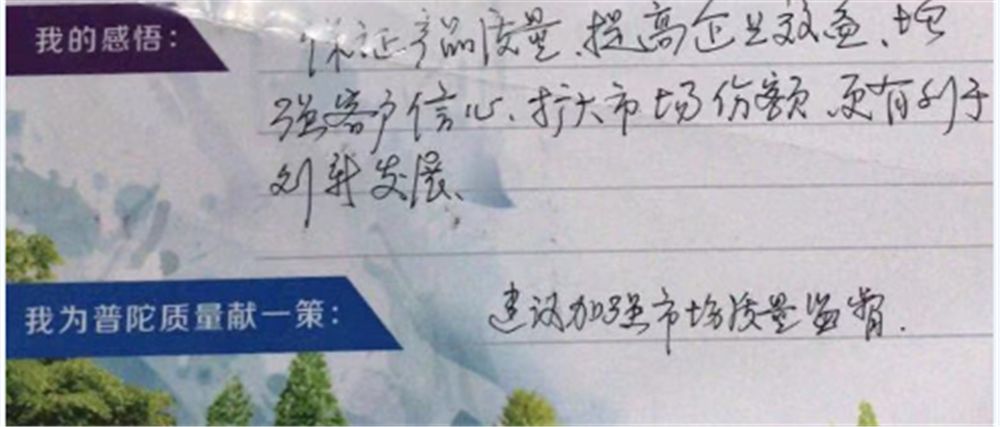 我的感悟：
保证产品质量、提高企业效益、增
强客户信心、扩大市场份额 更有利于
创新发展、
我为普陀质量献一策：
建议加强市场质量监督.